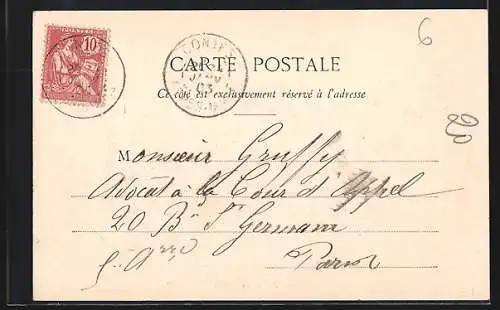 POSTES
10
CONTES
JANV
03
6
CARTE POSTALE
Ce côté est exclusivement réservé à l'adresse
20
Monsieur Gruffy
Avocat à la Cour d'Appel
20 Bd St Germain
Paris